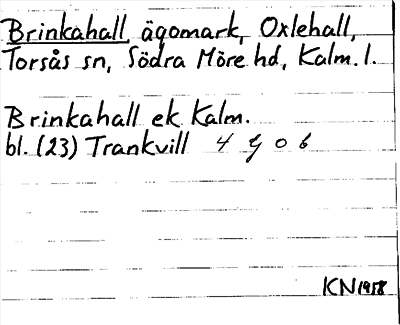 Brinkahall, ägomark, Oxlehall,
Torsås sn, Södra Möre hd, Kalm. l.
Brinkahall ek Kalm.
bl. (23) Trankvill 4 g o b
KN 1958